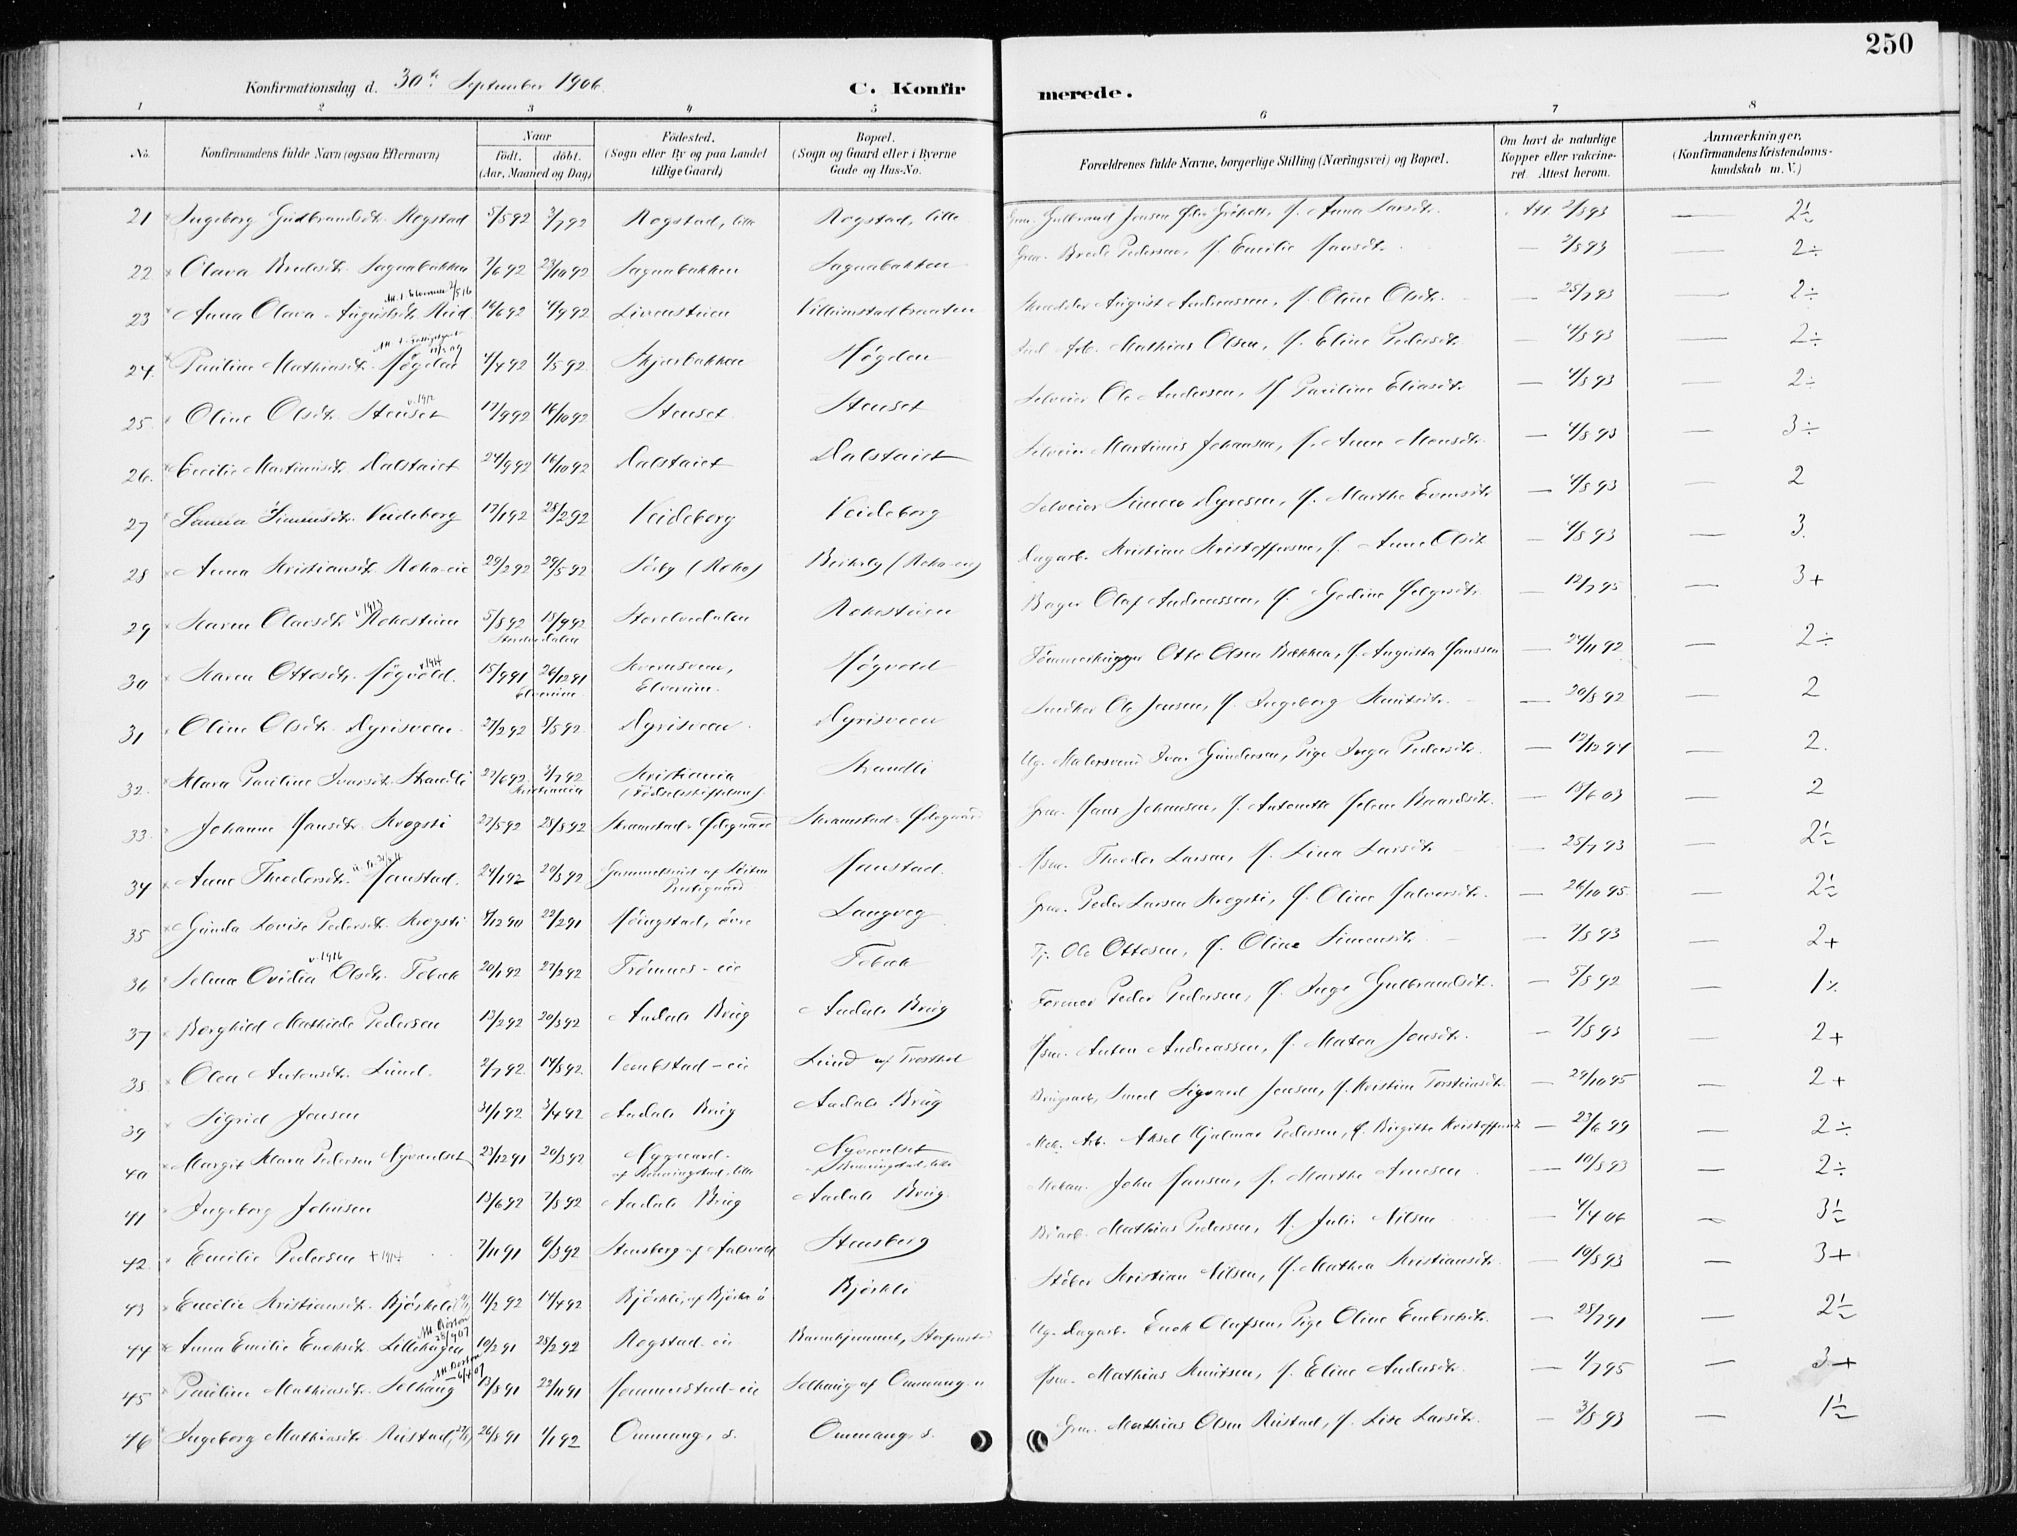 250
Konfirmationsdag d. 30te September 1906. C. Konfirmerede.
1 2 3 4 5 6 7 8
No. Konfirmandens fulde Navn (ogsaa Efternavn) Naar født, døbt. (Aar, Maaned og Dag) Fødested. (Sogn eller By og paa Landet tillige Gaard) Bopæl. (Sogn og Gaard eller i Byerne Gade og Hus-No. Forældrenes fulde Navne, borgerlige Stilling (Næringsvei) og Bopæl. Om havt de naturlige Kopper eller vakcineret. Attest herom. Anmærkninger. (Konfirmandens Kristendomskundskab m. V.)
21 Ingeborg Gudbrandsdt. Rogstad 5/5 92 3/7 92 Rogstad, lille Rogstad, lille Gulbrand Jensen, f. Anna Larsdt. Att. 2/8 93 — 2
22 Olava Bredesdt. Sagnabakken 7/6 92 23/10 92 Sagnabakken Sagnabakken Grm. Brede Pedersen, f. Emilie Hansdt. — 2/8 93 — 2÷
23 Anna Olava Augustsdt. Rud 16/6 92 4/9 92 Livensteien Skrædder August Andreassen, f. Oline Olsdt. — 25/7 93 — 2÷
24. Pauline Mathiasdt. Høgden 4/4 92 1/5 92 Skjærbakken Høgden Arb. Mathias Olsen, f. Eline Pedersdt. — 4/8 93 — 2÷
25. Oline Olsdt. Stenset v. 1912 17/9 92 16/10 92 Stenset Stenset Selveier Ole Andersen, f. Pauline Eliasdt. — 4/8 93 — 2÷
26. Cecilie Martinusdt. Dalstaiet 24/9 92 16/10 92 Dalstaiet Dalstaiet Selveier Martinus Johansen, f. Anne Monsdt. — 4/8 93 — 3÷
27 Veideborg 17/1 92 28/2 92 Veideborg Veideborg Selveier Simen Dyresen, f. Marthe Evensdt. — 4/8 93 — 2
28 Anna Kristiansdt. Roko-eie 29/2 92 29/5 92 Sørby (Roko) Birkeby (Roko-eie) Dagarb. Kristian Kristoffersen, f. Anne Olsdt. — 4/8 93 — 3.
29 Karen Olavsdt. Rokosteien v. 1913 5/8 92 18/9 92 Storelvedalen Rokosteien Bager Olaf Andreassen, f. Gedine Helgesdt. — 12/7 95 — 3+
Storelvedalen
30 Karen Ottosdt. Høgvold. v. 1914 15/9 91 26/12 91 Elverum. Høgvold Tømmerhugger Otto Olsen Bækken, f. Augusta Hanssen — 24/11 92 — 2÷
Elverum.
31 Oline Olsdt. Dyrisveen 27/2 92 8/5 92 Dyrisveen Dyrisveen Snedker Ole Jensen, f. Ingeborg Knutsdt. — 20/8 92 — 2
32. Klara Pauline Ivarsdt. Strandli 22/6 92 3/7 92 Kristiania (Fødselsstiftelsen) Strandli Ug. Malersvend Ivar Gundersen, Pige Inga Pedersdt. — 12/12 94 — 2.
Kristiania
33. Johanne Hansdt. Krogsti 22/5 92 28/8 92 Skramstad-Ødegaard Skramstad-Ødegaard Grm. Hans Johansen, f. Antonette Helene Baardsdt. — 13/6 03 — 2
34 Anne Theodorsdt. Honstad. 24/1 92 20/3 92 Honstad. Hsm. Theodor Larsen, f. Lina Larsdt. — 25/7 93 — 2
35 Gunda Lovise Pedersdt. Krogsti 8/12 90 22/2 91 Høngstad, øvre Langveg Grm. Peder Larsen Krogsti, f. Oline Halvorsdt. — 26/10 95. — 2
36 Selma Ovidia Olsdt. Tobak v. 1916 20/1 92 27/2 92 Trønnes-eie Tobak Tj. Ole Ottesen, f. Oline Simensdt. — 7/8 93 — 2+
37 Borghild Mathilde Pedersen 13/2 92 20/3 92 Aadals Brug Aadals Brug Former Peder Pedersen, f. Inga Gulbrandsdt. — 5/8 92 — 1
38 Olea Antonsdt. Lund. 2/7 92 14/8 92 Vembstad-eie Lund af Trosthol Hsm. Anton Andreassen, f. Matea Jonsdt. — 7/8 93 — 2+
39 Sigrid Jensen 31/1 92 3/4 92 Aadals Brug Aadals Brug Smed Sigvard Jensen, f. Kristine Torsteinsdt. — 29/10 95 — 2+
40 Margit Klara Pedersen Nyrandset 23/12 91 20/3 92 Nygaard af Rønningstad, lille Arb. Aksel Hjalmar Pedersen, f. Birgitte Kristoffersdt. — 23/6 99 — 2÷
41 Ingeborg Johnsen 13/6 92 7/8 92 Aadals Brug Aadals Brug. Mekan. John Hansen, f. Marthe Arnesen — 10/8 93 — 2÷
42. Emilie Pedersen + 1914 7/11 91 6/3 92 Stensberg af Aalsvold Stensberg Mathias Pedersen, f. Julie Nilsen — 4/4 06 — 3
43 Emilie Kristiansdt. Bjørkeli 11/2 92 14/4 92 Bjørkli, af Bjørke ø Bjørkli Støber Kristian Nilsen, f. Mathea Kristiansdt. — 10/8 93 — 3+
44 Anna Emilie Enoksdt. Lillehagen 28/9 07 10/2 91 28/2 92 Rogstad-eie Ug. Dagarb. Enok Olufsen, Pige Oline Embretsdt. — 28/7 91 — 2
45 Pauline Mathiasdt. Solhaug 13/8 91 22/11 91 Hommerstad-eie Solhaug af Ommang n Hsm. Mathias Knutsen, f. Eline Andersdt. — 1/7 95 — 3+
46 Ingeborg Mathiasdt. Rustad 26/8 91 1/1 92 Ommang, s. Ommang, s. Grm. Mathias Olsen Rustad, f. Lise Larsdt. — 3/8 93 — 1